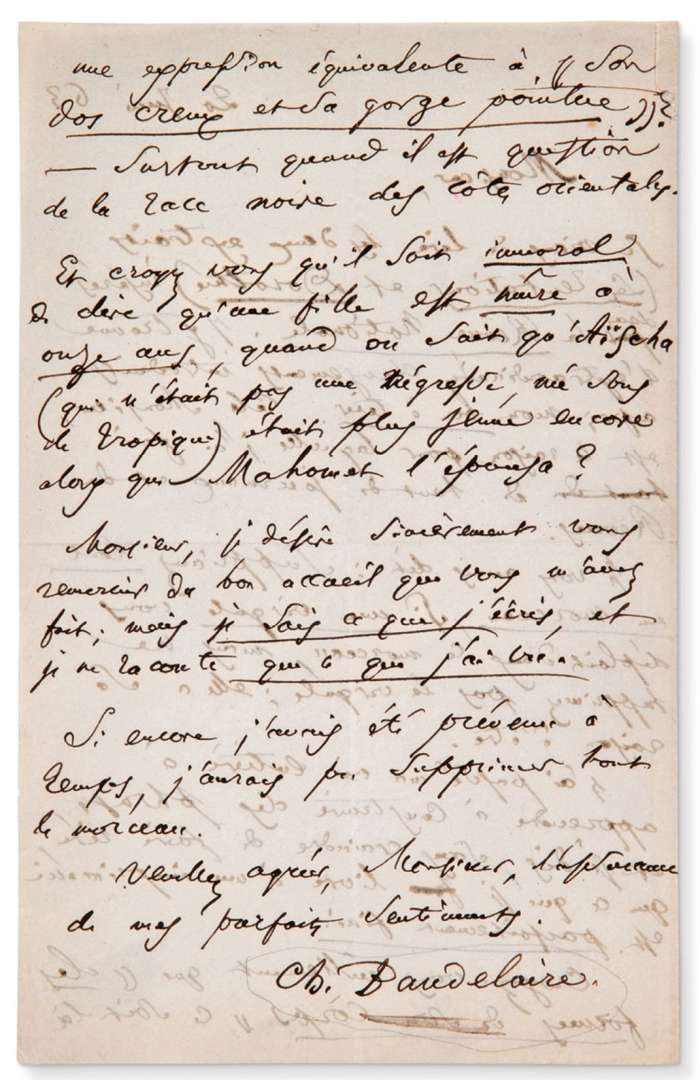 une expression équivalente à « Son
dos creux et sa gorge pointue »?
— Surtout quand il est question
de la race noire des côtes orientales.
Et croyez vous qu'il soit immoral
de dire qu'une fille est mûre à
onze ans, quand on sait qu'Aïscha
(qui n'était pas une négresse, née sous
le tropique) était plus jeune encore
alors que Mahomet l'épousa?
Monsieur, je désire sincèrement vous
remercier du bon accueil que vous m'avez
fait; mais je sais ce que j'écris, et
je ne raconte que ce que j'ai vu.
Si encore, j'avais été prévenu à
temps, j'aurais pu supprimer tout
le morceau.
Veuillez agréer, Monsieur, l'assurance
de mes parfaits sentiments.
Ch. Baudelaire.